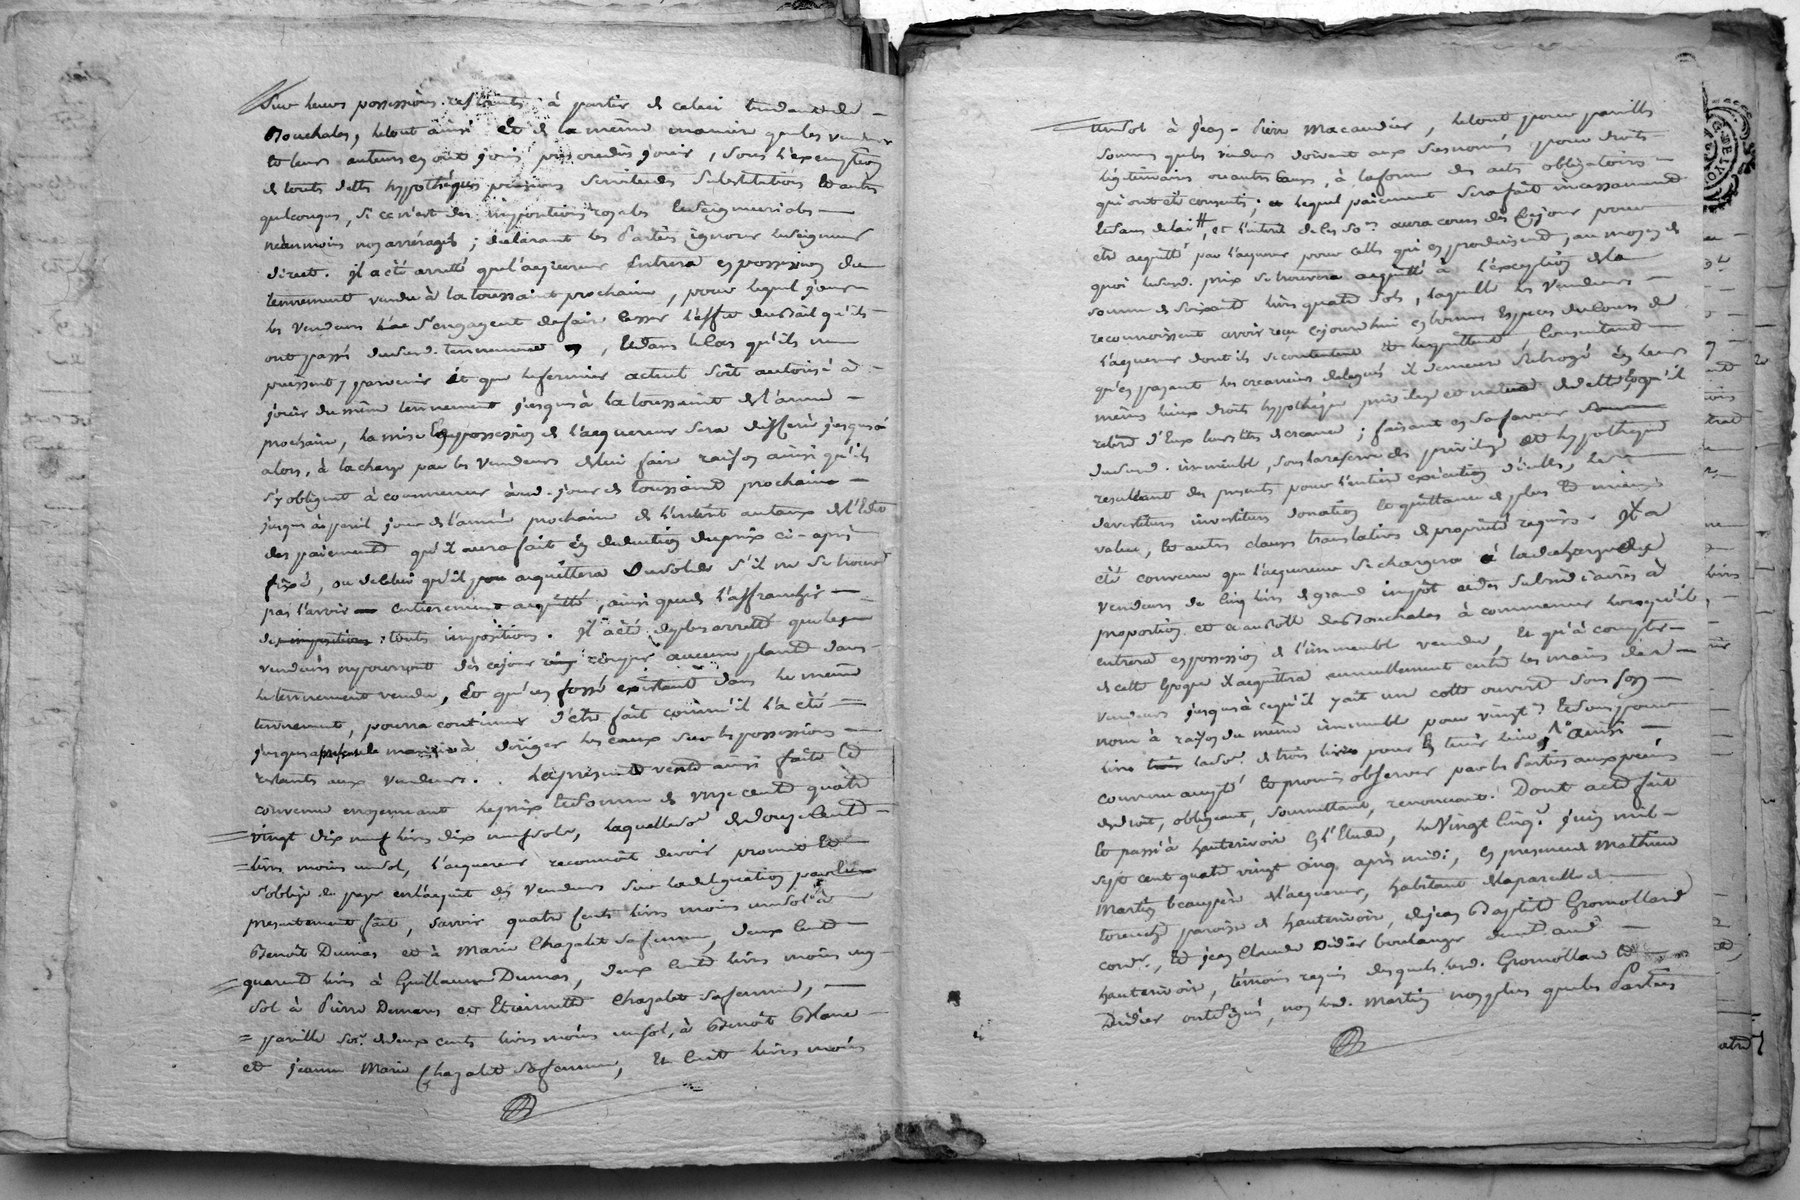 Sur leurs possessions restantes à partir de celui tendant de
Bouchalas, le tout ainsi et de la même maniere que les vendeurs
et leurs auteurs en ont joui, pu ou dû jouir, sous l'exemption
de touts dettes hypothèques pensions servitudes substitutions et autres
quelconques, si ce n'est des impositions royales et seigneuriales
néanmoins non arréragés ; déclarant les Parties ignorer le seigneur
direct. il a été arretté que l'acquereur entrera en possession du
tennement vendu à la toussaint prochaine, pour lequel jour
les vendeurs s'engagent de faire cesser l'effet du bail qu'ils
ont passé dud. tennement, et dans le cas qu'ils ne
puissent y parvenir et que le fermier actuel soit autorisé à
jouir du même tennement jusques à la toussaint de l'année
prochaine, la mise en possession de l'acquereur sera differée jusques à
alors, à la charge par les vendeurs de lui faire raison ainsi qu'ils
s'y obligent à commencer aud. jour de toussaint prochaine
jusques à pareil jour de l'année prochaine de l'intérêt au taux de l'Edit
des paiements qu'il aura fait en deduction du prix ci-après
fixé, ou de celui qu'il acquittera du solde s'il ne se trouve
pas l'avoir entierement acquitté, ainsi que de l'affranchir
de toute impositions. Il a été de plus arretté que les
vendeurs ne pourront dès ce jour couper aucune plante dans
le tennement vendu, et qu'un fossé existant dans le même
tennement, pourra continuer d'etre fait comme il l'a été
jusques à présent de maniere à diriger les eaux sur les possessions
restants aux vendeurs. La présente vente ainsi faite et
convenue moyennant le prix et somme de onze cents quatre
vingt dix neuf livres dix neuf sols, laquelle so. de douze cents
livres moins un sol, l'acquereur reconnoît devoir promet et
s'oblige de payer en l'acquit des vendeurs sur la delegation par eux
presentement fait, savoir quatre cents livres moins un sol à
Benoît Dumas et à Marie Chazalet sa femme, deux cents
quarante livres à Guillaume Dumas, deux cents livres moins un
sol à Pierre Dumas et Etiennette Chazalet sa femme,
pareille so. de deux cents livres moins un sol, à Benoît Blanc
et Jeanne Marie Chazalet sa femme, et cent livres moins
un sol à Jean-Pierre Macaudier, le tout pour pareilles
sommes que les vendeurs doivent aux susnommés pour droits
légitimaires ou autres causes, à la forme des actes obligatoires
qui ont été consentis ; lequel paiement sera fait incessamment
et sans delai, et l'intérêt de les so. aura cours dès ce jour pour
etre acquitté par l'acquereur pour celles qui en produisent, au moyen de
quoi led. prix se trouvera acquitté à l'exception de la
somme de soixante livres quatre sols, laquelle les vendeurs
reconnoissent avoir reçu ce jourd'hui en bonnes especes du cours de
l'acquereur dont ils se contentent et le quittent, consentant
qu'en payant les creanciers delegués il demeure subrogé en leurs
mêmes lieux droits hypothèque privilege et nature de dette
du sud. immeuble, sous la reserve des privilege et hypotheque
resultant des presents pour l'entiere execution d'icelles,
devestiture investiture donation et quittance de plus et mieux
value, et autres clauses translatives de proprieté requises. Il a
été convenu que l'acquereur se chargera à la decharge des
vendeurs de cinq livres de grand impôt et des subsidiaires à
proportion et au rolle des Bouchalas à commencer lorsqu'il
entrera en possession de l'immeuble vendu, et qu'à compter
de cette époque il acquittera annuellement entre les mains des
vendeurs jusques à ce qu'il y ait une cotte ouverte sous son
nom à raison du même immeuble pour vingt
livres la so. de trois livres pour leur tenir lieu ainsi
convenu accepté et promis observer par les parties aux peines
de droit, obligeant, soumettant, renonçant. Dont acte fait
et passé à hauterivoire en l'Etude, le vingt cinq juin mil
sept cent quatre vingt cinq après midi, en presence Mathieu
Martin beaupère de l'acquereur, habitant de la parcelle de
paroisse de hauterivoire, de jean Baptiste Gromolland
cord., et jean Claude Didier boulanger dud.
hauterivoire, témoins requis desquels led. Gromolland et
Didier ont signé, non led. Martin non plus que les Parties